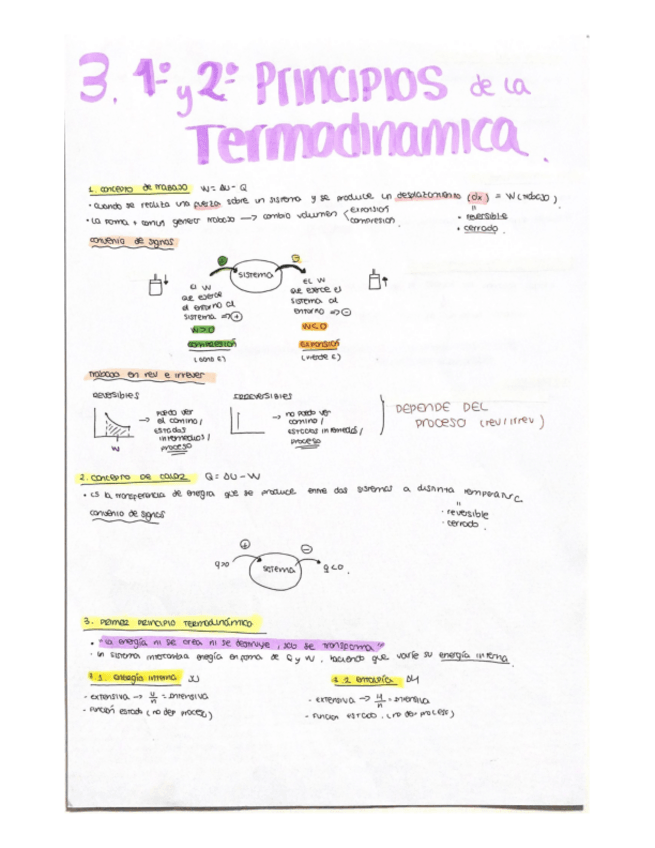 3. 1º y 2º Principios de la
Termodinamica.
1. concepto de trabajo W = ΔU - Q
• cuando se realiza una fuerza sobre un sistema y se produce un desplazamiento (dx) = W (trabajo)
• La forma + comun generar trabajo → cambio volumen expansión
compresion
• reversible
• cerrado
convenio de signos
+ sistema -
el W
que ejerce
el entorno al
sistema => +
W>0
compresión
(gana E)
el W
que ejerce el
sistema al
entorno => -
W<0
expansión
(pierde E)
trabajo en rev e irrever
reversibles
W
→ puedo ver
el camino /
estados
intermedios /
proceso
irreversibles
→ no puedo ver
camino /
estados intermedios /
proceso
DEPENDE DEL
PROCESO (rev/irrev)
2. concepto de calor Q = ΔU - W
• es la transferencia de energía que se produce entre dos sistemas a distinta temperatura
convenio de signos
· reversible
· cerrado
+ -
q>0 sistema q<0
3. primer principio termodinámico
• "La energía ni se crea ni se destruye, solo se transforma"
· un sistema intercambia energía en forma de Q y W, haciendo que varíe su energía interna.
energía interna
- extensiva → U/n = intensiva
- función estado (no dep proceso)
entalpía ΔH
- extensiva → H/n = intensiva
- funcion estado. (no dep proceso)